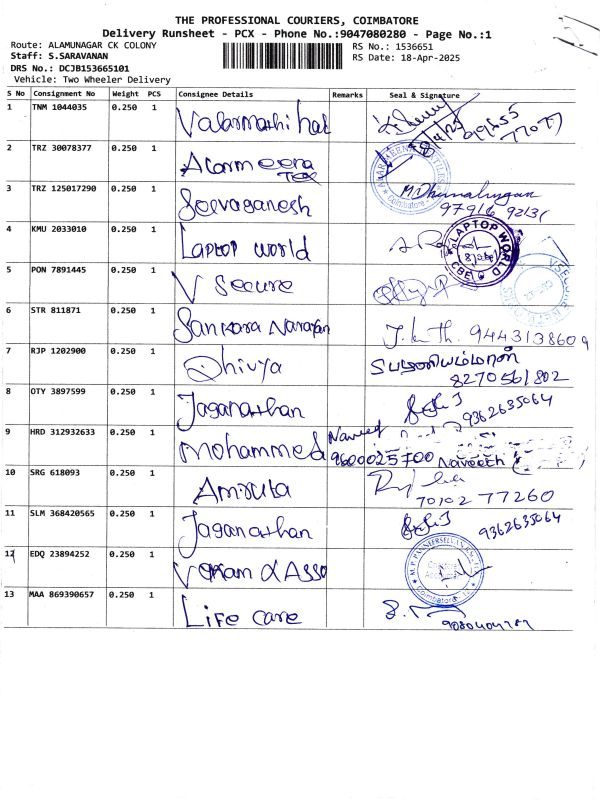 THE PROFESSIONAL COURIERS, COIMBATORE
Delivery Runsheet - PCX - Phone No.:9047080280 - Page No.:1
Route: ALAMUNAGAR CK COLONY
RS No.: 1536651
Staff: S.SARAVANAN
RS Date: 18-Apr-2025
DRS No.: DCJB153665101
Vehicle: Two Wheeler Delivery
S No Consignment No Weight PCS Consignee Details Remarks Seal & Signature
1 TNM 1044035 0.250 1 Valarmathi
2 TRZ 30078377 0.250 1 Alarmeera Tex
3 TRZ 125017290 0.250 1 Selvaganesh
4 KMU 2033010 0.250 1 Laptop world LAPTOP WORLD CBE
5 PON 7891445 0.250 1 V Secure
6 STR 811871 0.250 1 Sankara Narayan 9443138609
7 RJP 1202900 0.250 1 Dhivya 8270561802
8 OTY 3897599 0.250 1 Jaganathan 9362635064
9 HRD 312932633 0.250 1 Mohammed Naveed
9600025700 Naveeth
10 SRG 618093 0.250 1 Amruta 70102 77260
11 SLM 368420565 0.250 1 Jaganathan 9362635064
12 EDQ 23894252 0.250 1
13 MAA 869390657 0.250 1 Life care